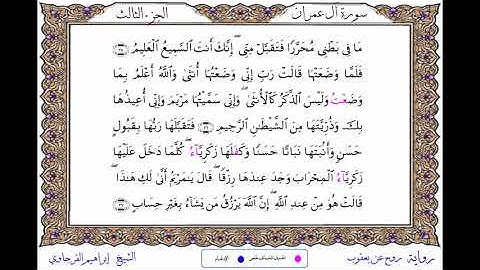 سورة آل عمران الجزء الثالث
مَا فِي بَطْنِي مُحَرَّرًا فَتَقَبَّلْ مِنِّيۖ إِنَّكَ أَنتَ السَّمِيعُ الْعَلِيمُ
فَلَمَّا وَضَعَتْهَا قَالَتْ رَبِّ إِنِّي وَضَعْتُهَا أُنثَىٰ وَاللَّهُ أَعْلَمُ بِمَا
وَضَعْتُ وَلَيْسَ الذَّكَرُ كَالْأُنثَىٰۖ وَإِنِّي سَمَّيْتُهَا مَرْيَمَ وَإِنِّي أُعِيذُهَا
بِكَ وَذُرِّيَّتَهَا مِنَ الشَّيْطَٰنِ الرَّجِيمِ فَتَقَبَّلَهَا رَبُّهَا بِقَبُولٍ
حَسَنٍ وَأَنبَتَهَا نَبَاتًا حَسَنًا وَكَفَلَهَا زَكَرِيَّآءُۖ كُلَّمَا دَخَلَ عَلَيْهَا
زَكَرِيَّآءُ الْمِحْرَابَ وَجَدَ عِندَهَا رِزْقًاۖ قَالَ يَٰمَرْيَمُ أَنَّىٰ لَكِ هَٰذَاۖ
قَالَتْ هُوَ مِنْ عِندِ اللَّهِۖ إِنَّ اللَّهَ يَرْزُقُ مَن يَشَآءُ بِغَيْرِ حِسَابٍ
رواية روح عن يعقوب الشيخ إبراهيم الفرجاوي